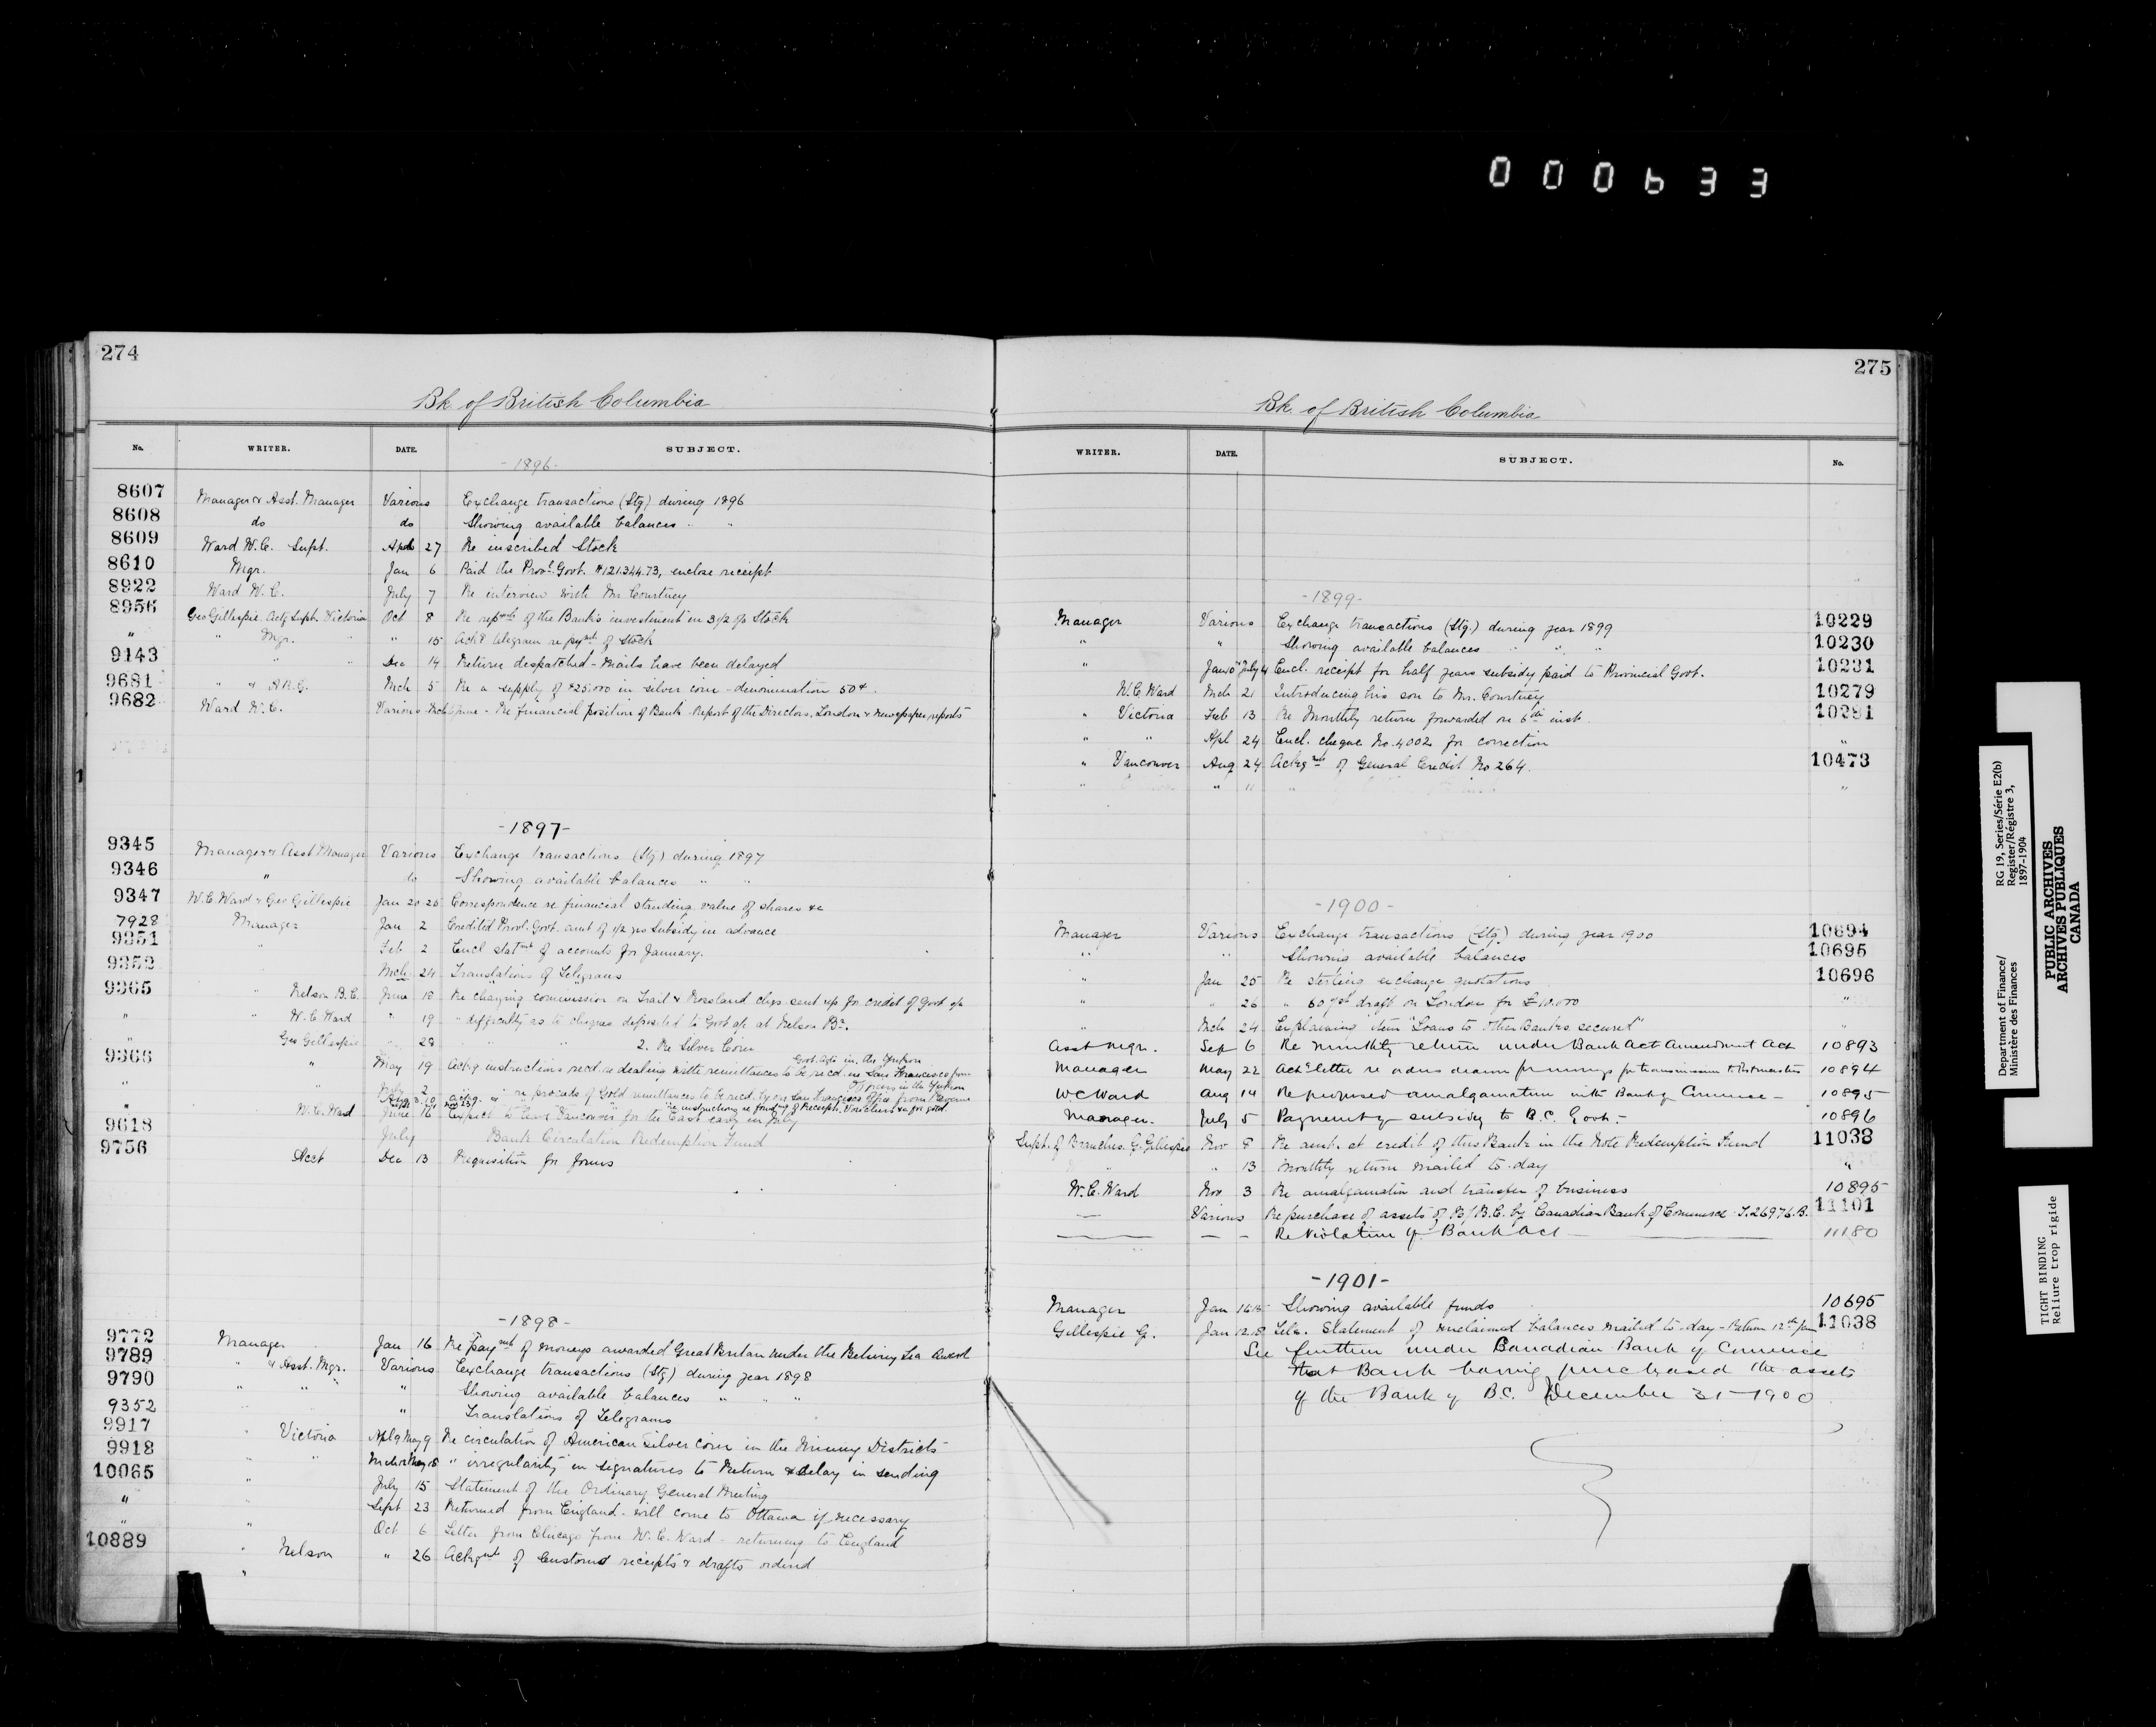 000633
274
Bk. of British Columbia
No. WRITER. DATE. SUBJECT.
-1896-
8607 Manager & Asst. Manager Various Exchange transactions (Stg) during 1896
8608 do do Showing available balances " "
8609 Ward W.C. Supt. Apl 27 Re inscribed Stock
8610 Mgr. Jan 6 Paid the Provl. Govt. $121.344.73, enclose receipt
8922 Ward W.C. July 7 Re interview with Mr Courtney
8956 Geo Gillespie Actg Supt. Victoria Oct 8 Re of the Bank's investment in 3 1/2 % Stock
" " Mgr. " " 15 Ack telegram re pymt of Stock
9143 " " Dec 14 Return despatched - Mails have been delayed
9681 " " Mch 5 Re a supply of $25.000 in silver coin - denomination 50¢.
9682 Ward W.C. Various Mch June - Re financial position of Bank - Report of the Directors, London & newspaper reports
-1897-
9345 Manager & Asst Manager Various Exchange transactions (Stg) during 1897
9346 " do Showing available balances " "
9347 W.C. Ward & Geo Gillespie Jan 20-25 Correspondence re financial standing, value of shares &c
7928 Manager Jan 2 Credited Provl. Govt. amt of 1/2 yrs Subsidy in advance
9351 " Feb 2 Encl statmt of accounts for January.
9352 Mch 24 Translations of Telegrams
9365 " Nelson B.C. June 18 Re charging commission on Trail & Rossland chqs sent up for credit of Govt a/c
" " W.C. Ward " 19 " difficulty as to cheques deposited to Govt a/c at Nelson Br.
" Geo Gillespie " 28 " " 2. Re Silver Coin
9366 " May 19 Ackg instructions recd re dealing with remittances to be recd in San Francisco from Govt. Agts in the Yukon
" " July 2 Ackg. " re proceeds of Gold remittances to be recd. by our San Francisco Office from Officers in the Yukon
" W.C. Ward June 16 Expect to leave Vancouver for the East early in July
9618 July Bank Circulation Redemption Fund
9756 Acct Dec 13 Requisition for forms
-1898-
9772 Manager Jan 16 Re paymt of moneys awarded Great Britain under the Behring Sea Award
9789 " & Asst. Mgr. Various Exchange transactions (Stg) during year 1898
9790 " " " " Showing available balances " " "
9352 " " Translations of Telegrams
9917 " Victoria Apl 9 May 9 Re circulation of American Silver Coin in the Mining Districts
9918 " " Mch 12 May 18 " irregularity in signatures to Return & delay in sending
10065 " July 15 Statement of the Ordinary General Meeting
" " Sept 23 Returned from England - will come to Ottawa if necessary
" " Oct 6 Letter from Chicago from W.C. Ward - returning to England
10889 " Nelson " 26 Ackgmt of Customs receipts & drafts ordered
275
Bk. of British Columbia
WRITER. DATE. SUBJECT. No.
-1899-
Manager Various Exchange transactions (Stg.) during year 1899 10229
" " Showing available balances " " " 10230
" Jan 10 July 4 Encl. receipt for half years subsidy paid to Provincial Govt. 10231
W.C. Ward Mch 21 Introducing his son to Mr. Courtney 10279
" Victoria Feb 13 Re Monthly return forwarded on 6th inst. 10281
" " Apl 24 Encl. cheque No. 4002 for correction "
" Vancouver Aug 24 Ackgmt of General Credit No 264. 10473
-1900-
Manager Various Exchange transactions (Stg) during year 1900 10694
" " Showing available balances 10695
" Jan 25 Re sterling exchange quotations 10696
" " 26 " 60 draft on London for £10.000 "
" Mch 24 Explaining item "Loans to other Banks, secured" "
Asst Mgr. Sep 6 Re monthly return under Bank Act Amendment Act 10893
Manager May 22 Ack letter re orders drawn for transmission to Postmasters 10894
W C Ward Aug 14 Re proposed amalgamation with Bank of Commerce - 10895
Manager. July 5 Payment of subsidy to B.C. Govt. - 10896
Supt. of Branches. G. Gillespie Nov 8 Re amt. at credit of this Bank in the Note Redemption Fund 11038
" 13 Monthly return mailed to-day "
W.C. Ward Nov 3 Re amalgamation and transfer of business 10895
— Various Re purchase of assets of B/B.C. by Canadian Bank of Commerce - T.26976.B. 11101
— — — Re Violation of Bank Act — 11180
-1901-
Manager Jan 16 18 Showing available funds 10695
Gillespie G. Jan 12.18 Tele. Statement of unclaimed balances mailed to-day - Return 12th Jan 11038
See further under Canadian Bank of Commerce
that Bank having purchased the assets
of the Bank of B.C. December 31-1900
Department of Finance/
Ministère des Finances
RG 19, Series/Série E2(b)
Register/Régistre 3,
1897-1904
PUBLIC ARCHIVES
ARCHIVES PUBLIQUES
CANADA
TIGHT BINDING
Reliure trop rigide